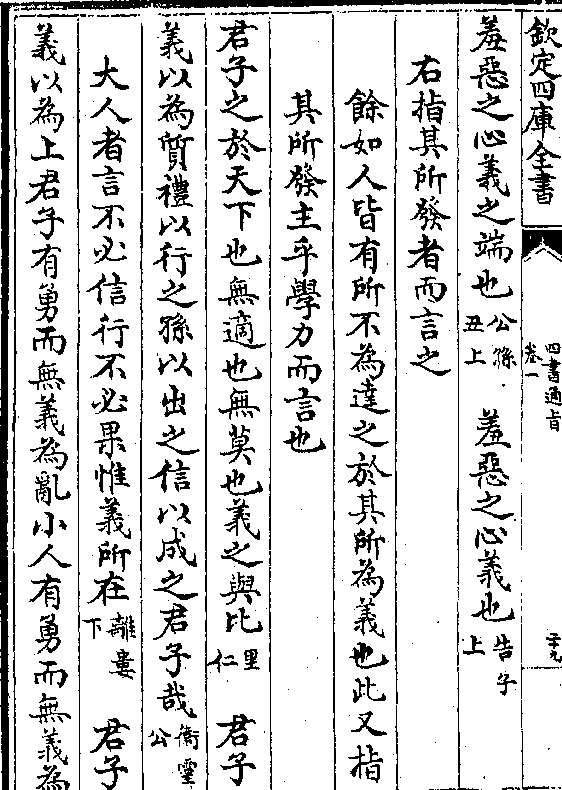 欽定四庫全書
四書通旨
卷一
二十九
羞惡之心義之端也 公孫丑上 羞惡之心義也 告子上
右指其所發者而言之
餘如人皆有所不為達之於其所為義也此又指
其所發主乎學力而言也
君子之於天下也無適也無莫也義之與比 里仁 君子
義以為質禮以行之孫以出之信以成之君子哉 衛靈公
大人者言不必信行不必果惟義所在 離婁下 君子
義以為上君子有勇而無義為亂小人有勇而無義為